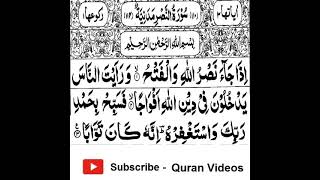 اٰیَاتُهَا ٣ (١١٠) سُوْرَةُ النَّصْرِ مَدَنِیَّةٌ (١١٤) رُكُوْعُهَا ١
بِسْمِ اللهِ الرَّحْمٰنِ الرَّحِیْمِ
اِذَا جَآءَ نَصْرُ اللهِ وَالْفَتْحُ ۙ وَرَاَیْتَ النَّاسَ
یَدْخُلُوْنَ فِیْ دِیْنِ اللهِ اَفْوَاجًا ۙ فَسَبِّحْ بِحَمْدِ
رَبِّكَ وَاسْتَغْفِرْهُ ؕ اِنَّهٗ كَانَ تَوَّابًا ۠
Subscribe - Quran Videos